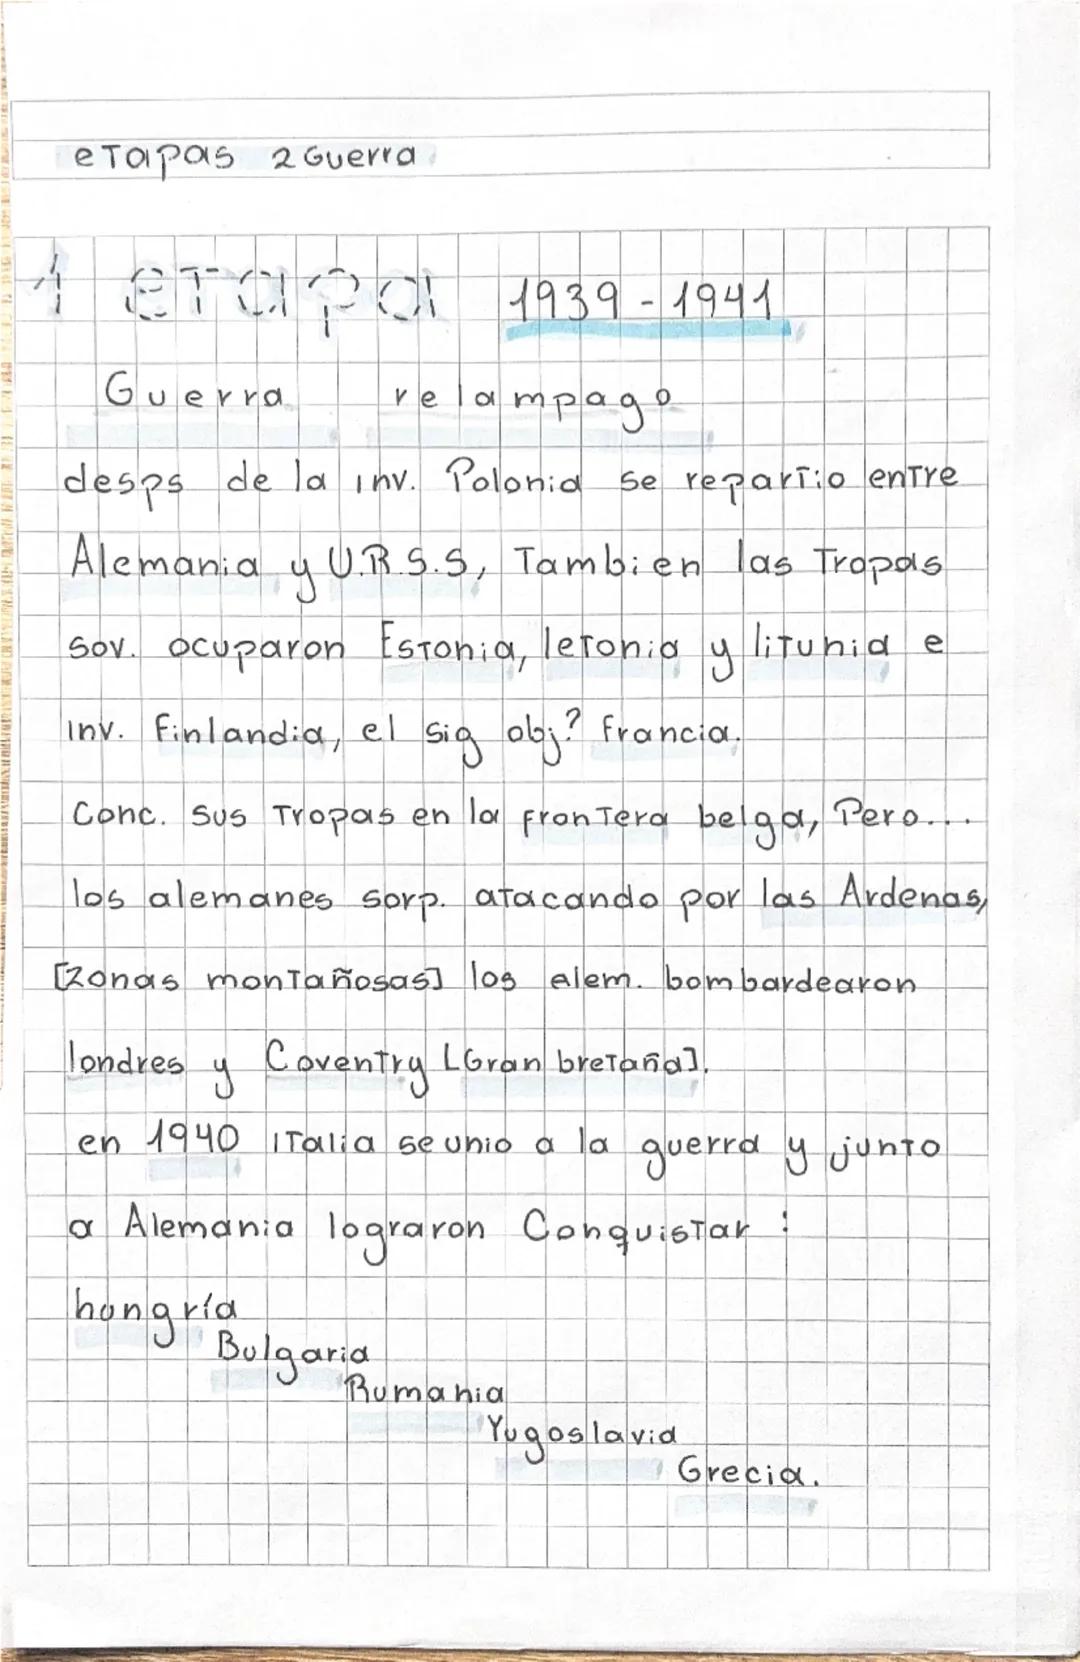 eTapas 2 Guerra
1 eTapa 1939-1941
Guerra relampago
desps de la inv. Polonia se reparTio enTre
Alemania y U.R.S.S, Tambien las Tropas
sov. ocuparon EsTonia, leTonia y liTunia e
inv. finlandia, el sig obj? francia.
Conc. sus Tropas en la fronTera belga, Pero...
los alemanes sorp. aTacando por las Ardenas,
[zonas monTañosas] los alem. bombardearon
londres y CovenTry [Gran breTaña].
en 1940 iTalia se unio a la guerra y junTo
a Alemania lograron ConquisTar :
hungría
Bulgaria
Rumania
Yugoslavia
Grecia.